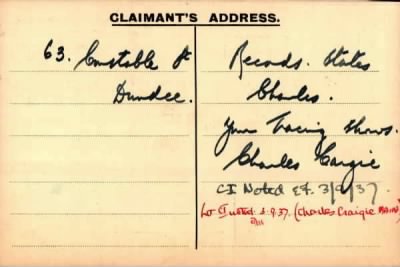 CLAIMANT'S ADDRESS.
63. Constable St
Dundee.
Records. States
Charles.
Your Tracing Shows.
Charles Caigie
C.I. Noted 3/9/37.
noted. 3.9.37. (Charles Craigie